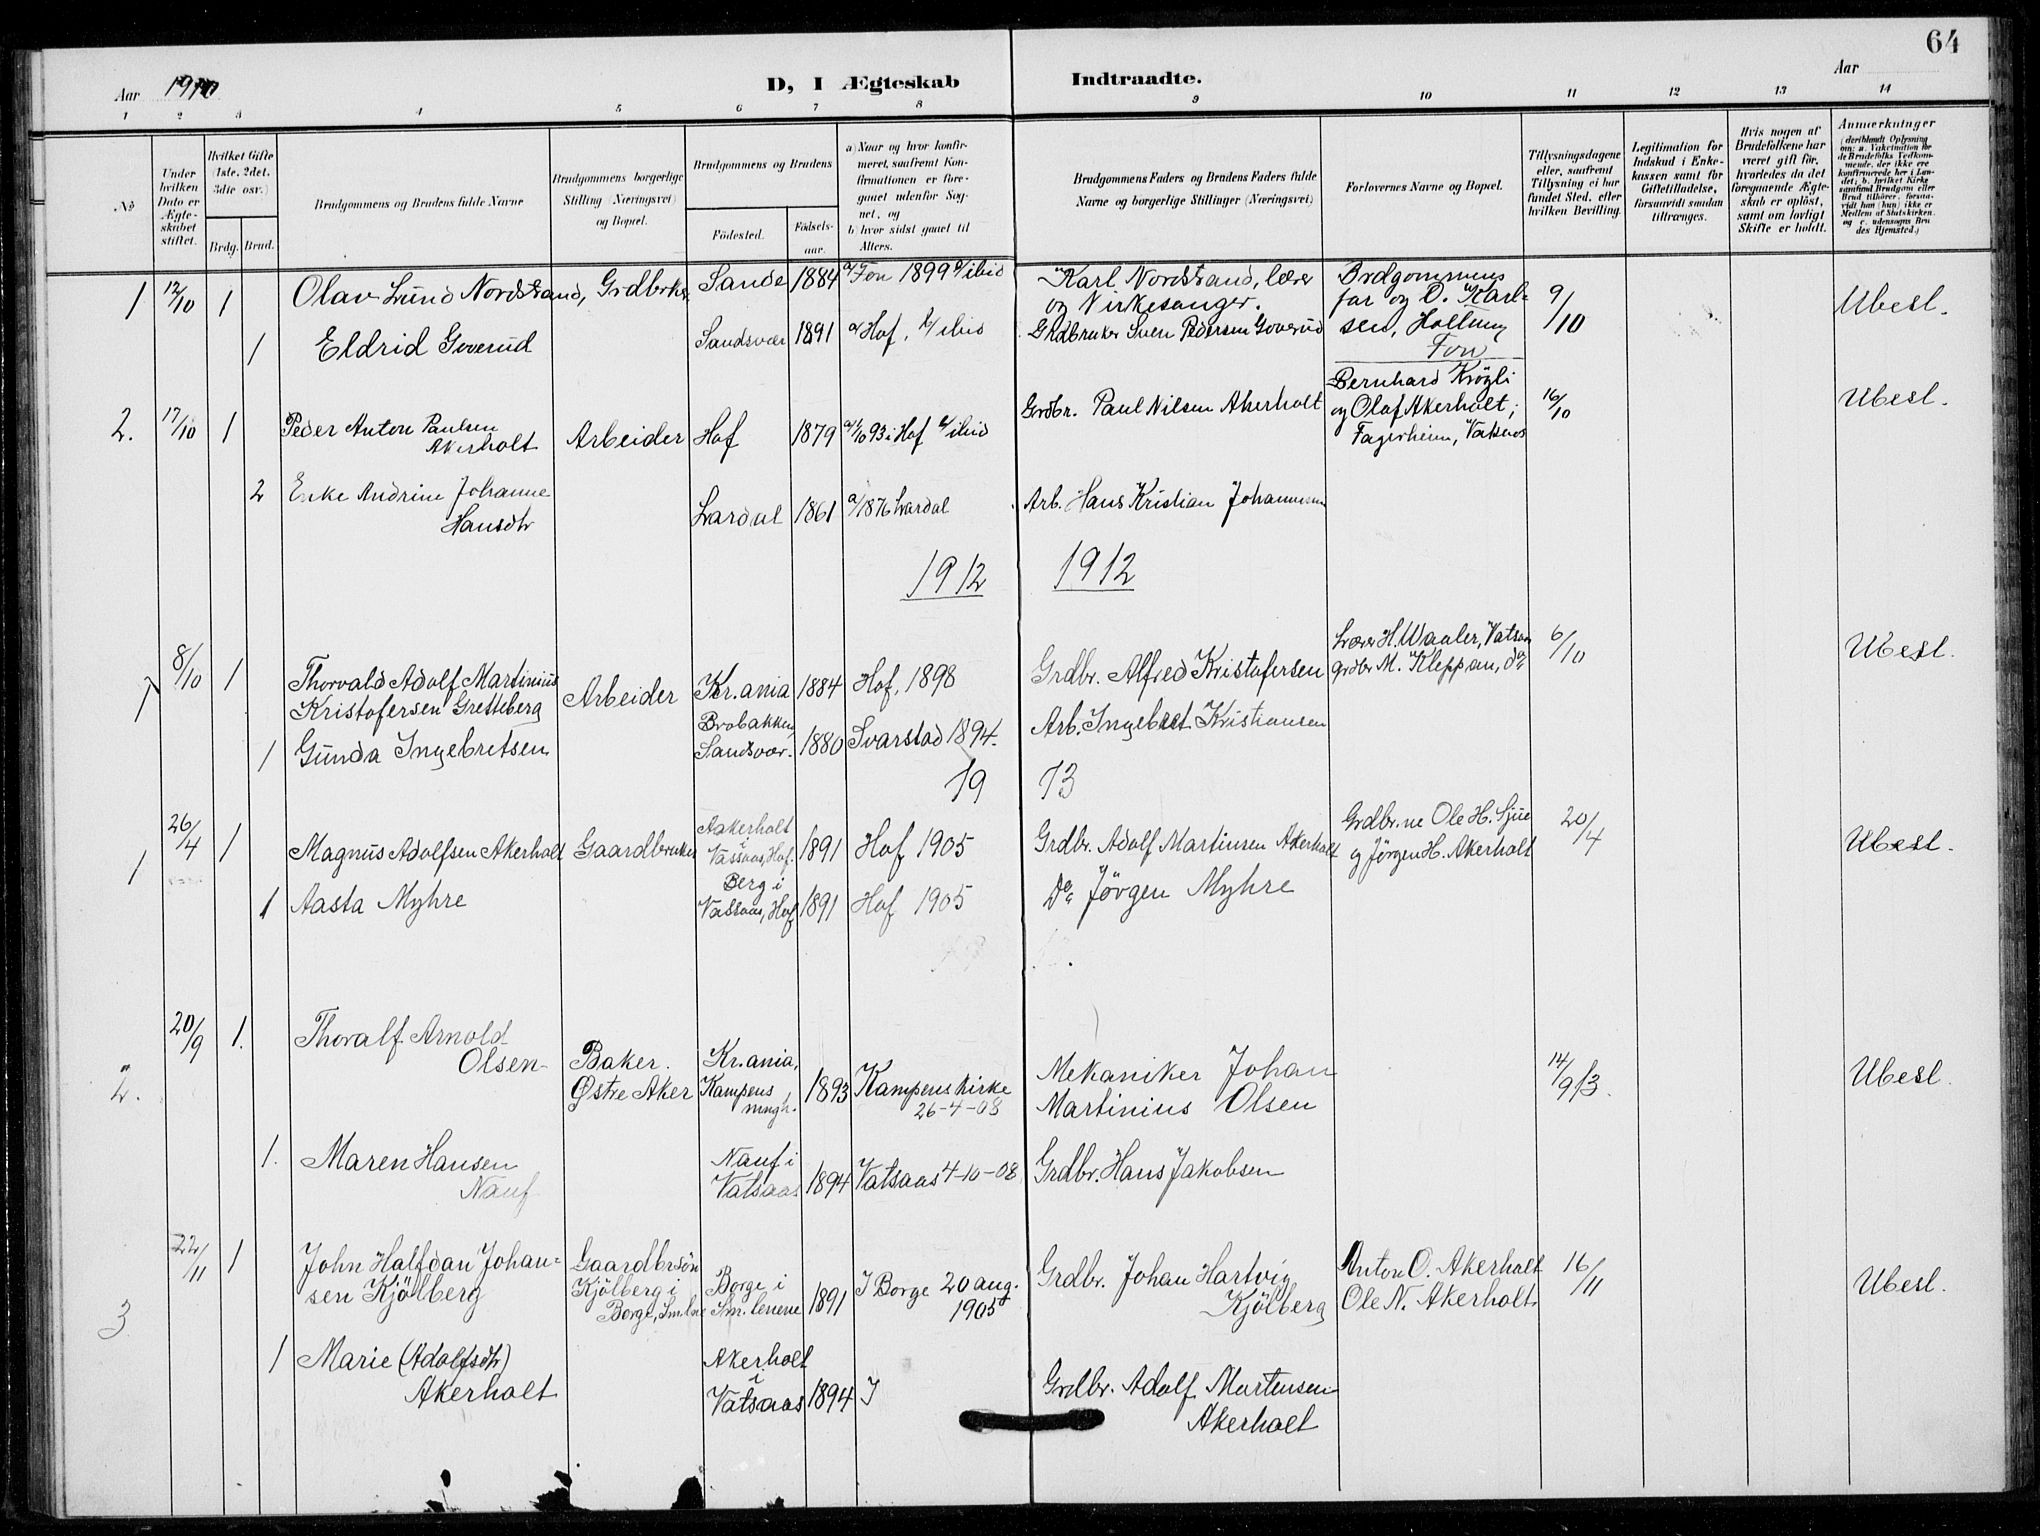 64
Aar 1910
D, I Ægteskab Indtraadte.
Aar
1 2 3 4 5 6 7 8 9 10 11 12 13 14
No
Under hvilken Dato er Ægteskabet stiftet.
Hvilket Gifte (1ste, 2det, 3die osv.)
Brdg. Brud.
Brudgommens og Brudens fulde Navne
Brudgommens borgerlige Stilling (Næringsvei) og Bopæl.
Brudgommens og Brudens
Fødested.
Fødselsaar.
a) Naar og hvor konfirmeret, saafremt Konfirmationen er foregaaet udenfor Sognet, og
b) hvor sidst gaaet til Alters.
Brudgommens Faders og Brudens Faders fulde Navne og borgerlige Stillinger (Næringsvei)
Forlovernes Navne og Bopæl.
Tillysningsdagene eller, saafremt Tillysning ei har fundet Sted, efter hvilken Bevilling.
Legitimation for Indskud i Enkekassen samt for Giftetilladelse, forsaavidt saadan tiltrænges.
Hvis nogen af Brudefolkene har været gift før, hvorledes da det foregaaende Ægteskab er opløst, samt om lovligt Skifte er holdt.
Anmerkninger
(deriblandt Oplysning om: a. Vakcination for de Brudefolks Vedkommende, der ikke ere konfirmerede her i Landet; b. hvilket Kirke samfund Brudgom eller Brud tilhører, forsaavidt han (hun) ikke er Medlem af Statskirken, og c. udensogns Brudes Hjemsted.)
1 12/10 1 Olav Lund Nordstrand, Grdbrker Sande 1884 a/ Fon 1899 b/ ibid Karl Nordstrand, lærer og Kirkesanger. Brdgommens far og O. Karlsen, Hallung Fon 9/10 Ubesl.
1 Eldrid Goverud Sandsvær 1891 a/ Hof, b/ ibid Grdbruker Sven Pedersen Goverud
2. 17/10 1 Peder Anton Paulsen Akerholt Arbeider Hof 1879 93 i Hof b/ ibid Grdbr. Paul Nilsen Akerholt Bernhard Krøgli og Olaf Akerholt; Fagerheim, Vatsaas 16/10 Ubesl.
2 Enke Andrine Johanne Hansdtr Lardal 1861 a/ 1876 Lardal Arb. Hans Kristian Johannesen
1912 1912
1 8/10 1 Thorvald Adolf Martinius Kristofersen Gretteberg Arbeider Kr.ania 1884 Hof, 1898 Grdbr. Alfred Kristofersen Lærer H. Waaler, Vatsaas grdbr M. Kleppan, do 6/10 Ubesl.
1 Gunda Ingebretsen Brobakken, Sandsvær. 1880 Svarstad 1894. Arb. Ingebret Kristiansen
19 13
1 26/4 1 Magnus Adolfsen Akerholt Gaardbruker Aakerholt i Vassaas, Hof. 1891 Hof 1905 Grdbr. Adolf Martinsen Akerholt Grdbr.ne Ole H. Sjue og Jørgen H. Akerholt 20/4 Ubesl.
1 Aasta Myhre Berg i Vassaas, Hof 1891 Hof 1905 Do Jörgen Myhre
2. 20/9 1. Thoralf Arnold Olsen Baker. Østre Aker Kr.ania, Kampens mngh. 1893 Kampens kirke 26-4-08 Mekaniker Johan Martinius Olsen 14/9 13. Ubesl.
1. Maren Hansen Nauf Nauf i Vatsaas 1894 Vatsaas 4-10-08 Grdbr. Hans Jakobsen
3 22/11 1 John Halfdan Johansen Kjölberg Gaardbrsön Kjölberg i Borge, Sm.lne Borge i Sm.lenene 1891 I Borge 20 aug. 1905 Grdbr. Johan Hartvig Kjölberg Anton O. Akerholt Ole N. Akerholt 16/11 Ubesl.
1 Marie (Adolfsdtr) Akerholt Akerholt i Vatsaas 1894 I Grdbr. Adolf Martensen Akerholt